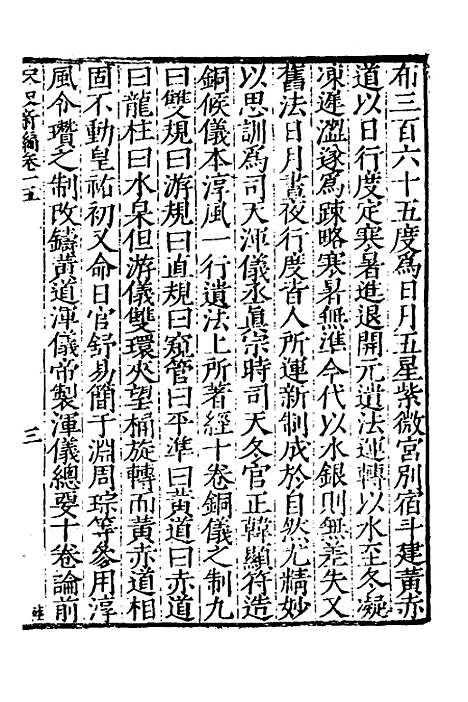 布三百六十五度爲日月五星紫微宮列宿斗建黃赤
道以日行度定寒暑進退開元遺法運轉以水至冬凝
凍遲澀遂爲疎略寒暑無準今代以水銀則無差失又
舊法日月晝夜行度皆人所運新制成於自然尤精妙
以思訓爲司天渾儀丞眞宗時司天冬官正韓顯符造
銅候儀本淳風一行遺法上所著經十卷銅儀之制九
曰雙規曰游規曰直規曰窺管曰平準曰黃道曰赤道
曰龍柱曰水臬但游儀雙環夾望筩旋轉而黃赤道相
固不動皇祐初又命日官舒易簡于淵周琮等叅用淳
風令瓚之制改鑄黃道渾儀帝製渾儀總要十卷論前
宋史新編卷一五
三